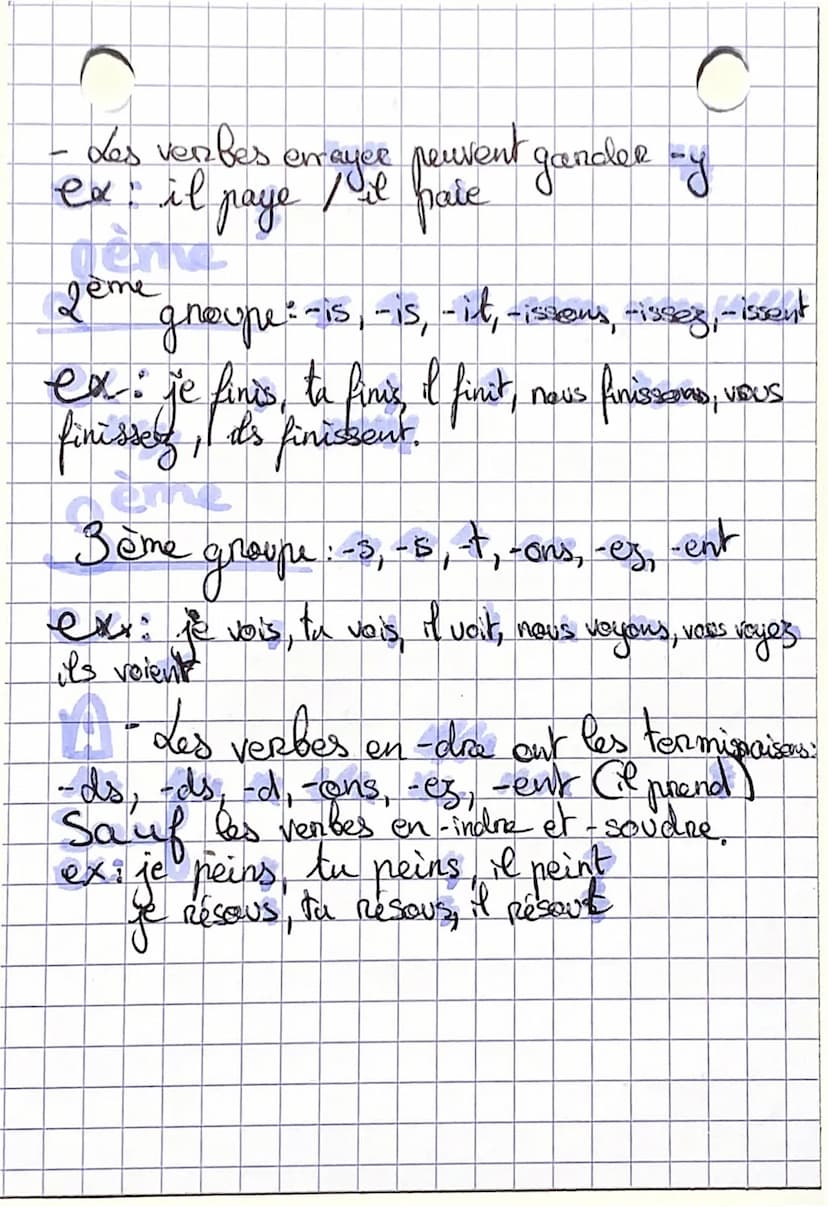 - Les verbes en -ayer peuvent garder -y
ex : il paye / il paie
2ème groupe : -is, -is, -it, -issons, -issez, -issent
ex : je finis, tu finis, il finit, nous finissons, vous
finissez, ils finissent.
3ème groupe : -s, -s, -t, -ons, -ez, -ent
ex : je vois, tu vois, il voit, nous voyons, vous voyez
ils voient
- Les verbes en -dre ont les terminaisons :
-ds, -ds, -d, -ons, -ez, -ent (il prend)
Sauf les verbes en -indre et -soudre.
ex : je peins, tu peins, il peint
je résous, tu résous, il résout